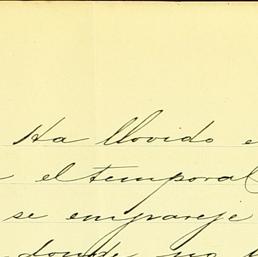 Ha llovido e
el temporal
se empareje
donde no